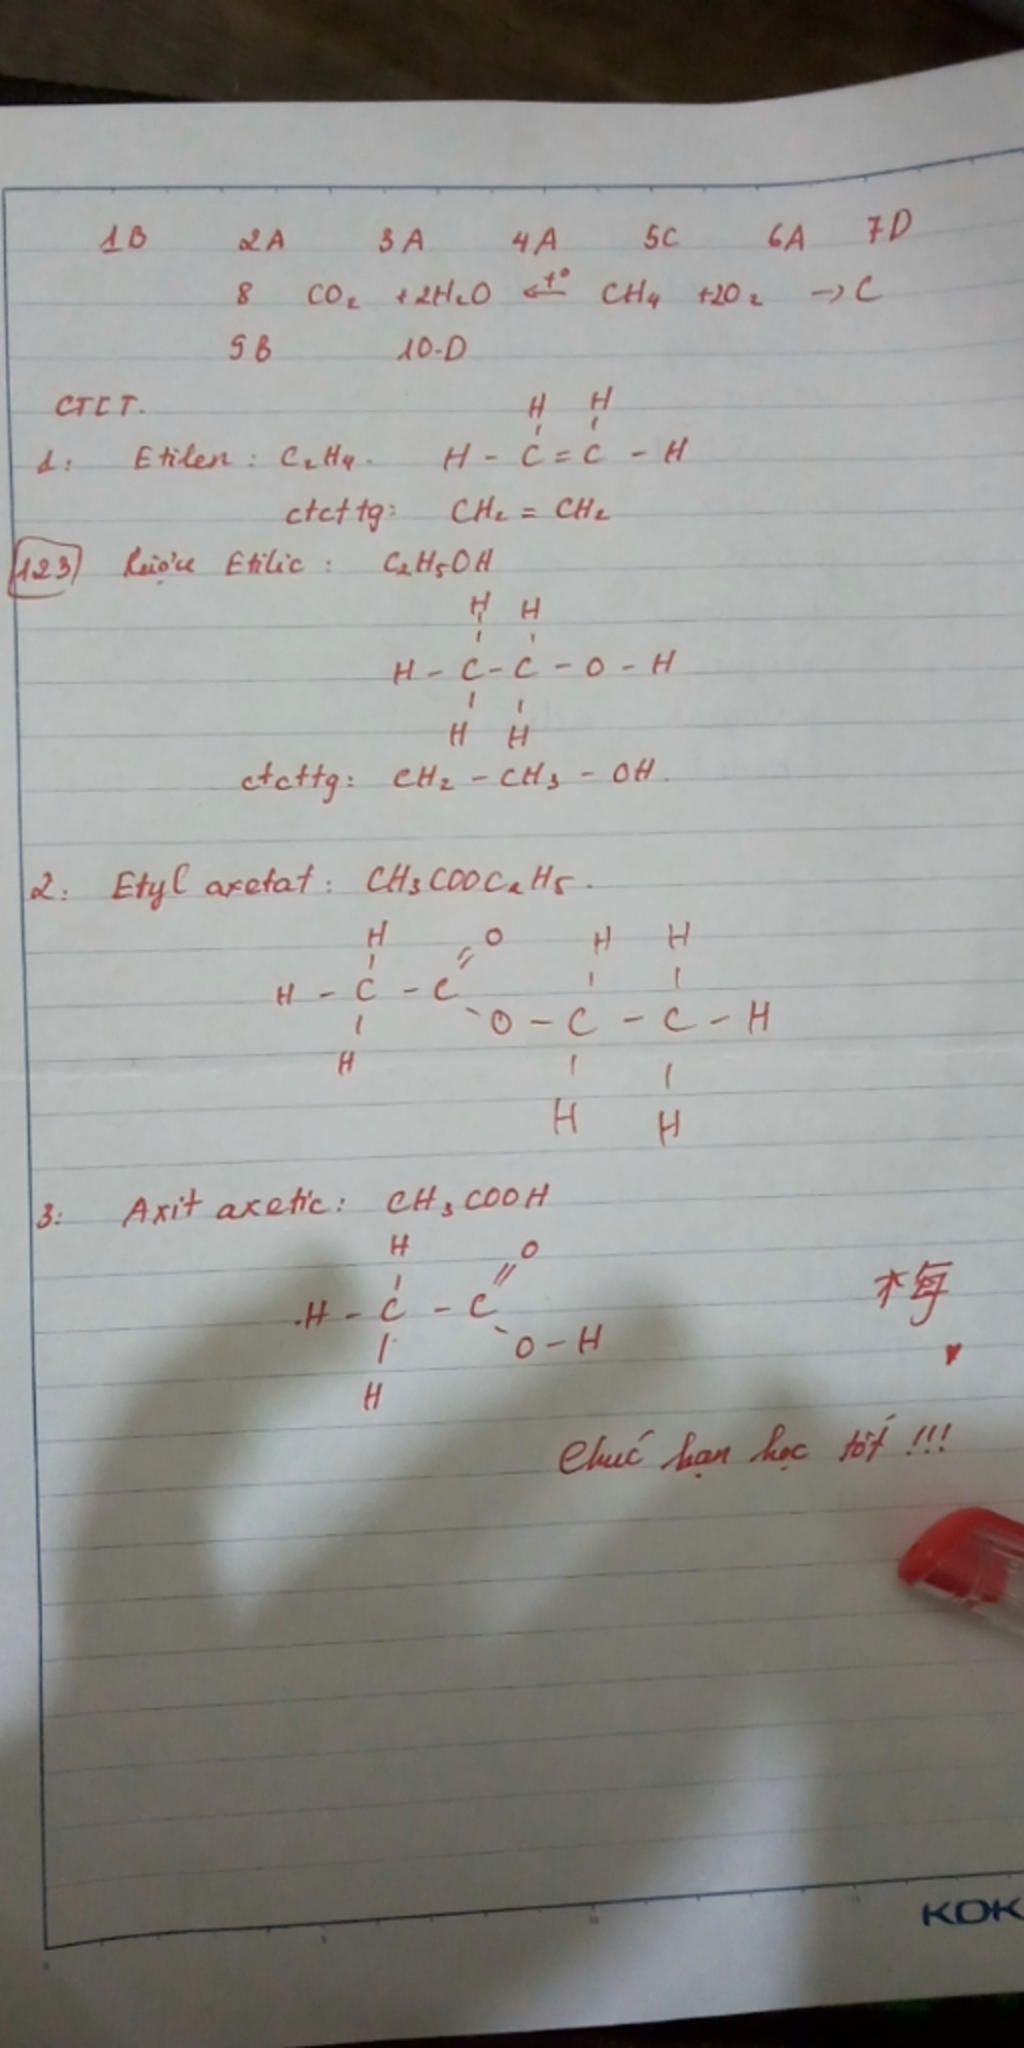 1B 2A 3A 4A 5C 6A 7D
8 CO2 + 2H2O ⟵t° CH4 + 2O2 → C
9B 10.D
CTCT.
H H
1: Etilen: C2H4. H - C = C - H
ctcttg: CH2 = CH2
123 Rượu Etilic: C2H5OH
H H
H - C - C - O - H
H H
ctcttg: CH2 - CH3 - OH.
2: Etyl axetat: CH3COOC2H5.
H O H H
H - C - C
O - C - C - H
H
H H
3: Axit axetic: CH3COOH
H O
H - C - C
O - H
H
梅
Chúc bạn học tốt !!!
KOK